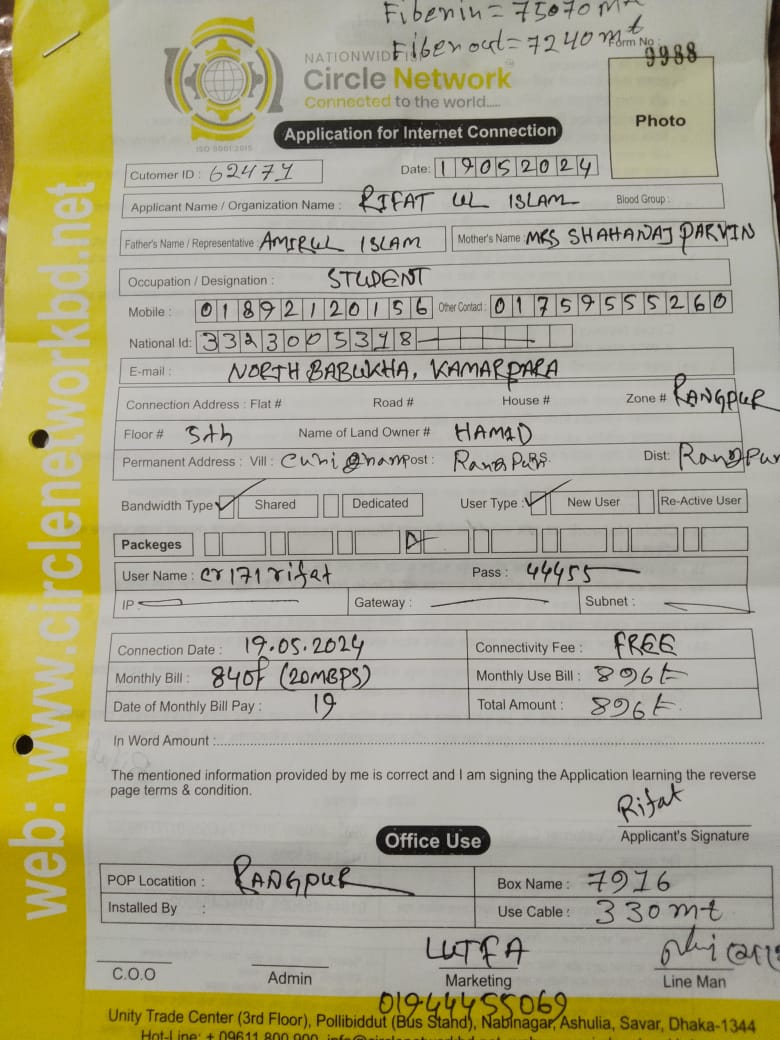 Fiber in = 75070 mt
Fiber out = 7240 mt
Form No : 9988
NATIONWIDE ISP
Circle Network
Connected to the world.....
ISO 9001:2015
Photo
Application for Internet Connection
Cutomer ID : 62471 Date: 19052024
Applicant Name / Organization Name : RIFAT UL ISLAM Blood Group :
Father's Name / Representative : AMIRUL ISLAM Mother's Name : MRS SHAHANAJ PARVIN
Occupation / Designation : STUDENT
Mobile : 01892120156 Other Contact : 01759555260
National Id: 3323005318
E-mail : NORTH BABUKHA, KAMARPARA
Connection Address : Flat # Road # House # Zone # RANGPUR
Floor # 5th Name of Land Owner # HAMID
Permanent Address : Vill : Post : Dist: Rangpur
Bandwidth Type Shared Dedicated User Type : New User Re-Active User
Packeges
User Name : cr171rifat Pass : 44455
IP : Gateway : Subnet :
Connection Date : 19.05.2024 Connectivity Fee : FREE
Monthly Bill : 840৳ (20MBPS) Monthly Use Bill : 896৳
Date of Monthly Bill Pay : 19 Total Amount : 896৳
In Word Amount :
The mentioned information provided by me is correct and I am signing the Application learning the reverse
page terms & condition.
Rifat
Applicant's Signature
Office Use
POP Locatition : RANGPUR Box Name : 7916
Installed By : Use Cable : 330 mt
LUTFA
C.O.O Admin Marketing Line Man
01944455069
Unity Trade Center (3rd Floor), Pollibiddut (Bus Stand), Nabinagar, Ashulia, Savar, Dhaka-1344
Hot-Line: + 09611 800 900,
web: www.circlenetworkbd.net